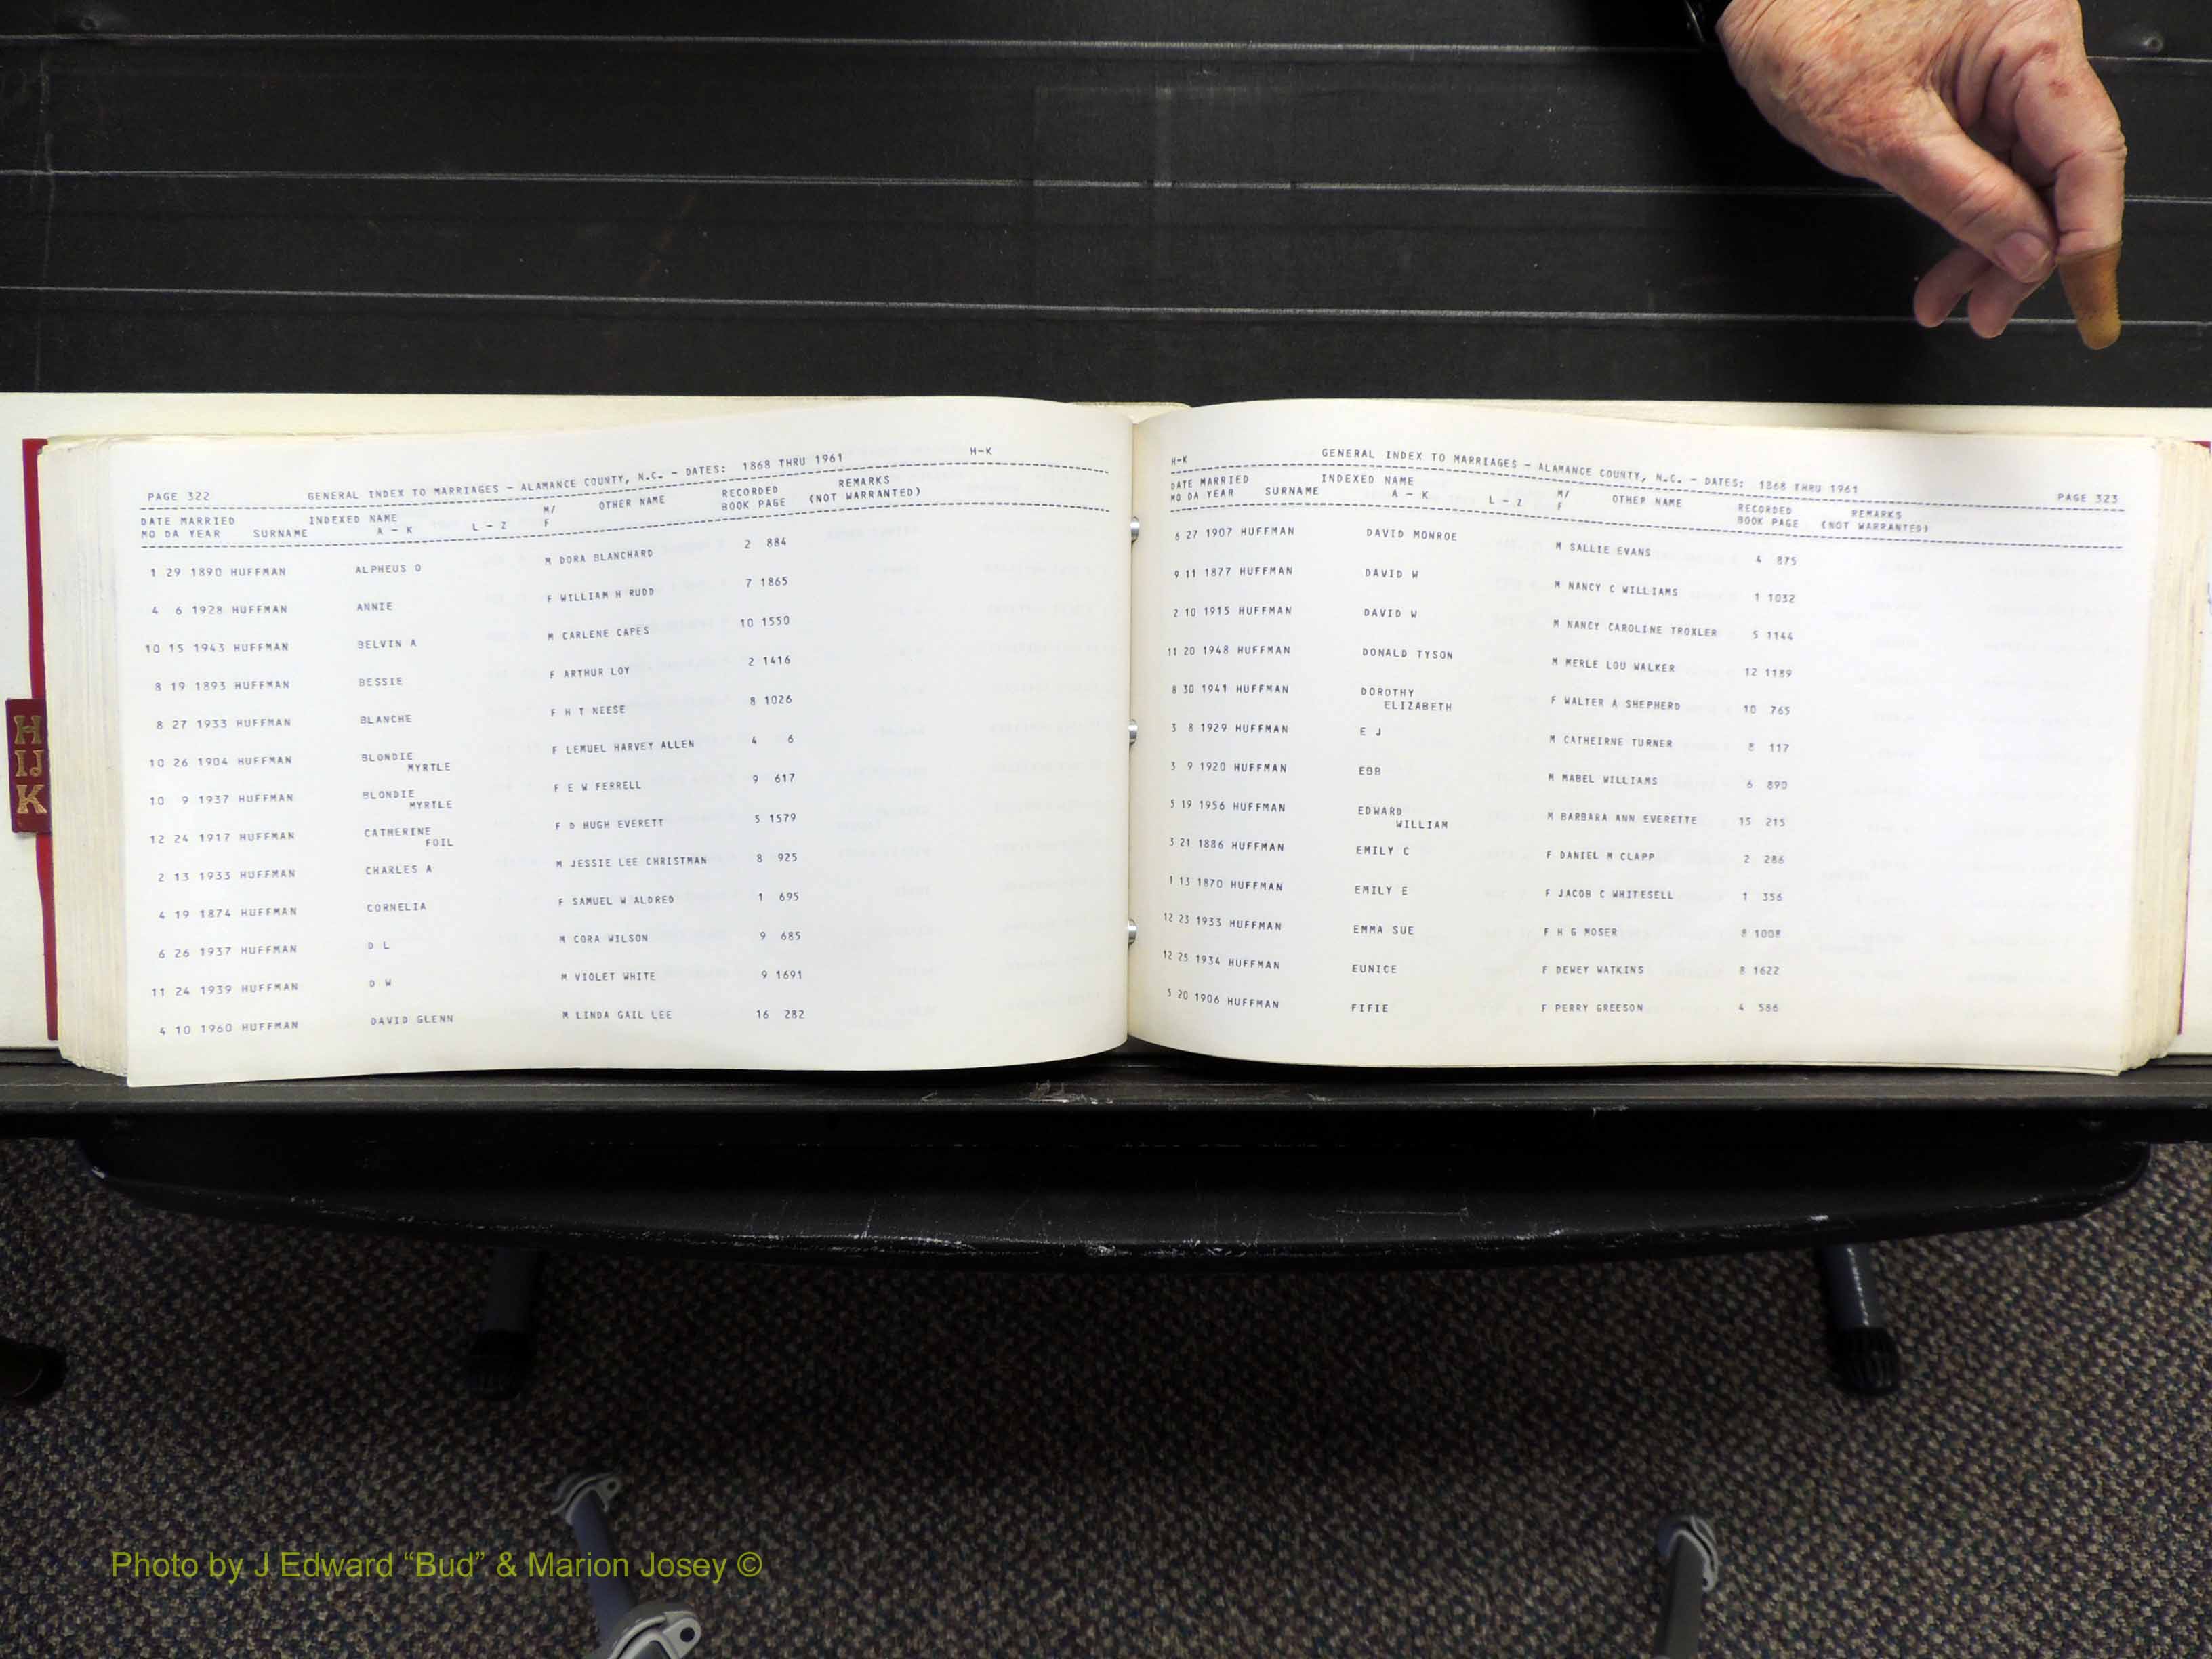 PAGE 322 GENERAL INDEX TO MARRIAGES - ALAMANCE COUNTY, N.C. - DATES: 1868 THRU 1961 H-K
DATE MARRIED INDEXED NAME M/ OTHER NAME RECORDED REMARKS
MO DA YEAR SURNAME A - K L - Z F BOOK PAGE (NOT WARRANTED)
1 29 1890 HUFFMAN ALPHEUS O M DORA BLANCHARD 2 884
4 6 1928 HUFFMAN ANNIE F WILLIAM H RUDD 7 1865
10 15 1943 HUFFMAN BELVIN A M CARLENE CAPES 10 1550
8 19 1893 HUFFMAN BESSIE F ARTHUR LOY 2 1416
8 27 1933 HUFFMAN BLANCHE F H T NEESE 8 1026
10 26 1904 HUFFMAN BLONDIE F LEMUEL HARVEY ALLEN 4 6
MYRTLE
10 9 1937 HUFFMAN BLONDIE F E W FERRELL 9 617
MYRTLE
12 24 1917 HUFFMAN CATHERINE F D HUGH EVERETT 5 1579
FOIL
2 13 1933 HUFFMAN CHARLES A M JESSIE LEE CHRISTMAN 8 925
4 19 1874 HUFFMAN CORNELIA F SAMUEL W ALDRED 1 695
6 26 1937 HUFFMAN D L M CORA WILSON 9 685
11 24 1939 HUFFMAN D W M VIOLET WHITE 9 1691
4 10 1960 HUFFMAN DAVID GLENN M LINDA GAIL LEE 16 282
H-K GENERAL INDEX TO MARRIAGES - ALAMANCE COUNTY, N.C. - DATES: 1868 THRU 1961 PAGE 323
DATE MARRIED INDEXED NAME M/ OTHER NAME RECORDED REMARKS
MO DA YEAR SURNAME A - K L - Z F BOOK PAGE (NOT WARRANTED)
6 27 1907 HUFFMAN DAVID MONROE M SALLIE EVANS 4 875
9 11 1877 HUFFMAN DAVID W M NANCY C WILLIAMS 1 1032
2 10 1915 HUFFMAN DAVID W M NANCY CAROLINE TROXLER 5 1144
11 20 1948 HUFFMAN DONALD TYSON M MERLE LOU WALKER 12 1189
8 30 1941 HUFFMAN DOROTHY F WALTER A SHEPHERD 10 765
ELIZABETH
3 8 1929 HUFFMAN E J M CATHEIRNE TURNER 8 117
3 9 1920 HUFFMAN EBB M MABEL WILLIAMS 6 890
5 19 1956 HUFFMAN EDWARD M BARBARA ANN EVERETTE 15 215
WILLIAM
3 21 1886 HUFFMAN EMILY C F DANIEL M CLAPP 2 286
1 13 1870 HUFFMAN EMILY E F JACOB C WHITESELL 1 356
12 23 1933 HUFFMAN EMMA SUE F H G MOSER 8 1008
12 25 1934 HUFFMAN EUNICE F DEWEY WATKINS 8 1622
5 20 1906 HUFFMAN FIFIE F PERRY GREESON 4 586
H
IJ
K
Photo by J Edward “Bud” & Marion Josey ©